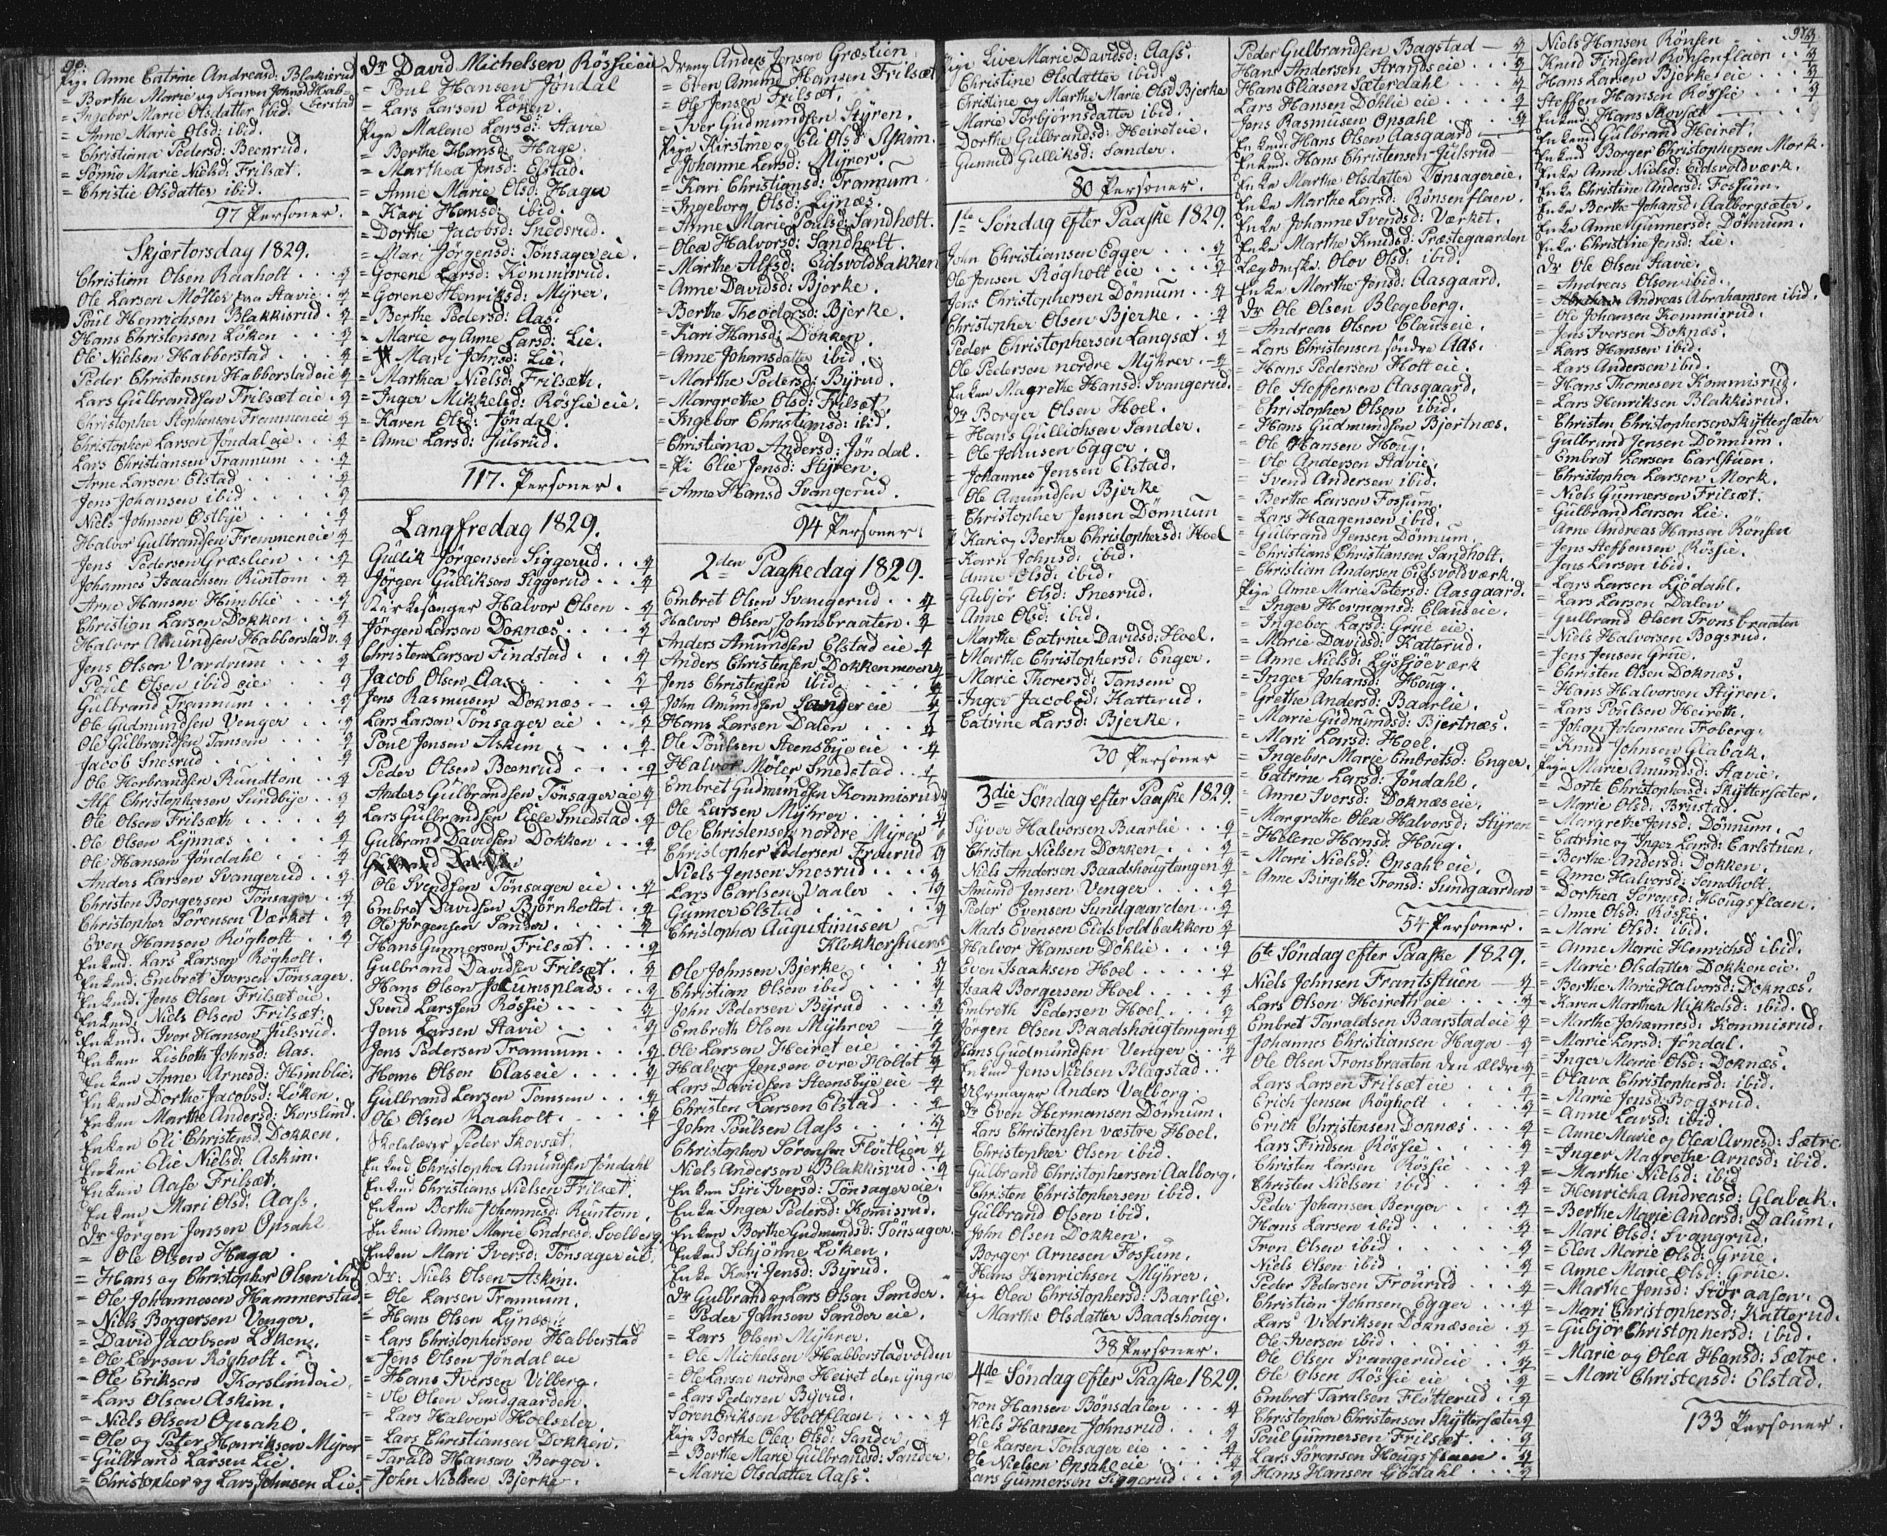 96.
Pige Anne Catrine Andreasd: Blakkisrud
= Berthe Marie og Karen Johnsd Hab-
berstad
= Ingebor Marie Olsdatter ibid.
= Anne Marie Olsd: ibid.
= Christiana Pedersd: Beenrud.
= Sønnie Marie Nielsd: Frilsæt.
= Christie Olsdatter ibid.
97 Personer.
Skjærtorsdag 1829.
Christian Olsen Raaholt . . . 4
Ole Larsen Møller paa Stavie . 4
Poul Henrichsen Blakkisrud . 4
Hans Christensen Løken . . . 4
Ole Nielsen Habberstad . . . 4
Peder Christensen Habberstad eie 4
Lars Gulbrandsen Frilsæt eie . 4
Christopher Stephensen Frommen eie 4
Christopher Larsen Jøndal eie . . 4
Lars Christiansen Trannum . . . 4
Arne Larsen Elstad . . . 4
Jens Johansen ibid . . . 4
Niels Johnsen Østbye . . . 4
Halvor Gulbrandsen Frommen eie 4
Jens Pedersen Græslien . . 4
Johannes Isaachsen Runtom . 4
Arne Hansen Himblie . . . 4
Christian Larsen Dokken . . 4
Halvor Amundsen Habberstad v. 4
Jens Olsen Vardrum . . . 4
Poul Olsen ibid eie . . . 4
Gulbrand Trannum . . . 4
Ole Gudmundsen Venger . . 4
Ole Gulbrandsen Tansem . . 4
Jacob Snesrud . . . 4
Ole Herbrandsen Rundtom . . 4
Alf Christophersen Sundbye . . 4
Ole Olsen Frilsæth . . . 4
Ole Olsen Lynnæs . . . 4
Ole Hansen Jøndahl . . . 4
Anders Larsen Svangerud . . 4
Christen Borgersen Tønsager . 4
Christopher Sørensen Værket . 4
Even Hansen Røgholt . . 4
Enkmd. Lars Larsen Røgholt.
Enkmd. Embret Iversen Tønsager.
Enkmd: Jens Olsen Frilsæt eie.
Enkmd Niels Olsen Frilsæt.
Enkmd. Iver Hansen Julsrud.
Enken Lisbeth Johnsd: Aas.
Enken Anne Arnesd: Himblie.
Enken Dorthe Jacobsd: Løken.
Enken Marthe Andersd: Korslund.
Enken Eli Christensd: Dokken.
Enken Elie Nielsd: Askim.
Enken Aase Frilsæt.
Enken Mari Olsd: Aass.
Dr Jørgen Jensen Opsahl
= Ole Olsen Haga
= Hans og Christopher Olsen ibid
= Ole Johannesen Hammerstad
= Niels Borgersen Venger.
= David Jacobsen Løken.
= Ole Larsen Røgholt.
= Ole Eriksen Korslund eie.
= Lars Olsen Askim.
= Niels Olsen Opsahl.
= Ole og Peter Henriksen Myrer
= Gulbrand Larsen Lie.
= Christopher og Lars Johnsen Lie
Dr David Michelsen Røssie eie
= Poul Hansen Jøndal
= Lars Larsen Løken.
Pige Malene Larsd: Stavie
= Berthe Hansd: Hage.
= Marthea Jensd: Elstad.
= Anne Marie Olsd: Haga
= Kari Hansd: ibid.
= Dorthe Jacobsd: Snedsrud.
= Mari Jørgensd: Tønsager eie.
= Gorene Larsd: Kommisrud.
= Gorene Henriksd: Myrer.
= Berthe Pedersd: Aas.
= Marie og Anne Larsd: Lie.
= Mari Johnsd: Lie.
= Marthea Nielsd: Frilsæth.
= Inger Mikkelsd: Røssie eie.
= Karen Olsd: Jøndal.
= Anne Larsd: Julsrud.
117. Personer.
Langfredag 1829.
Gullik Jørgensen Siggerud . . 4
Jørgen Gulliksen Siggerud . . 4
Kirkesanger Halvor Olsen . 4
Jørgen Larsen Doknæs . . . 4
Christen Larsen Findstad . . 4
Jacob Olsen Aas . . . 4
Jens Rasmusen Doknæs . . 4
Lars Larsen Tønsager eie . . 4
Poul Jensen Askim . . . 4
Peder Olsen Beenrud . . . 4
Anders Gulbrandsen Tønsager eie 4
Lars Gulbrandsen Lille Smedstad . 4
Gulbrand Davidsen Dokken . . 4
Ole Svendsen Tønsager eie . . 4
Embret Davidsen Bjørnholtet . . 4
Ole Jørgensen Sander . . . 4
Hans Gunnersen Frilsæt . . . 4
Gulbrand Davidsen Frilsæt . . 4
Hans Olsen Jocumsplads . . 4
Svend Larssen Røssie . . . 4
Jens Larsen Stavie . . . 4
Jens Pedersen Trannum . . . 4
Hans Olsen Elas eie . . . 4
Gulbrand Larsen Tansem . . 4
Ole Olsen Raaholt . . . 4
Skolelærer Peder Skovsæt.
Enkmd Christopher Amundsen Jøndahl
Enkmd Christians Nielsen Frilsæt.
Enken Berthe Johannesd: Runtom.
Enken Anne Marie Endresd: Soelberg
Enken Mari Iversd: Tønsager eie.
Dr: Niels Olsen Askim.
= Ole Larsen Trannum.
= Hans Olsen Lynæs.
= Lars Christophersen Habberstad
= Jens Olsen Jøndal eie
= Hans Iversen Vilberg.
= Ole Olsen Sundgaarden.
= Lars Halvor Hoelseter.
= Lars Christiansen Dokken.
= Tarald Hansen Berger.
= John Nielsen Bjerke.
Dreng Anders Jensen Græslien.
= Even Amund Hansen Frilsæt
= Ole Jensen Frilsæt.
= Iver Gudmundsen Styren.
Pige Kirstine og Eli Olsd Askim.
= Johanne Larsd: Myrer.
= Kari Christiansd: Trannum.
= Ingeborg Olsd: Lynæs.
= Anne Marie Poulsd: Sandholt.
= Olea Halvorsd: Sandholt.
= Marthe Alfsd: Eidsvoldbakken
= Anne Davidsd: Bjerke.
= Berthe Theodorsd: Bjerke.
= Kari Hansd: Dokken.
= Anne Johansdatter ibid.
= Marthe Pedersd: Byrud.
= Margrethe Olsd: Frilsæt.
= Ingebor Christiansd: ibid.
= Christiana Andersd: Jøndal.
= Pi Elie Jensd: Styren.
= Anne Hansd Svangerud.
94 Personer.
2den Paaskedag 1829.
Embret Olsen Svangerud . . 4
Halvor Olsen Johnsbraaten . 4
Anders Amundsen Elstad eie 4
Anders Christensen Dokkenmoen 4
Jens Christensen ibid . . . 4
John Amundsen Sander eie . 4
Hans Larsen Dalen . . . 4
Ole Poulsen Steensbye eie . . 4
Halvor Møler Smedstad . . 4
Embret Gudmundsen Kommisrud 4
Ole Larsen Myhrer . . . 4
Ole Christensen nordre Myrer . 4
Christopher Pedersen Frourud 4
Niels Jensen Snesrud . . . 4
Lars Carlsen Vaaler . . 4
Gunner Elstad . . . 4
Christopher Augustinusen
Klokkerstuen 4
Ole Johnsen Bjerke . . . 4
Christian Olsen ibid . . . 4
John Pedersen Byrud . . . 4
Embreth Olsen Myhrer . . 4
Ole Larsen Heiret eie . . . 4
Halvor Jensen øvre Holtet . 4
Lars Davidsen Steensbye eie . 4
Christen Larsen Elstad . . . 4
John Poulsen Aass . . . 4
Christopher Sørensen Fløitlien 4
Niels Andersen Blakkisrud . . 4
Enken Siri Iversd: Tønsager eie.
Enke Inger Pedersd: Komisrud.
Enken Berthe Gudmundsd: Tønsager
Enkmd Schjønne Løken.
Enke Kari Jensd: Byrud.
Dr Gulbrand og Lars Olsen Sander.
= Peder Johnsen Sander eie.
= Lars Olsen Myhrer.
= Ole Michelsen Habberstadvolden
= Ole Larsen nordre Heiret den yngre
= Lars Pedersen Byrud.
Søren Eriksen Holtflaen . . . 4
Pige Berthe Olea Olsd: Sander.
= Berthe Marie Gulbrandsd: Sander.
= Marie Olsdatter Aass.
Pige Live Marie Davidsd: Aass.
= Christine Olsdatter ibid.
= Christine og Marthe Marie Olsd Bjerke
= Marie Torbjørnsdatter ibid.
= Dorthe Gulbrandsd: Heiret eie.
= Gunnild Gulliksd: Sander.
80 Personer.
1te Søndag efter Paaske 1829.
John Christiansen Egger . . . 4
Ole Jensen Røgholt eie . . . 4
Jens Christophersen Dønnum . . 4
Christopher Olsen Bjerke . . 4
Peder Christophersen Langsæt . 4
Ole Pedersen nordre Myhrer . 4
Enken Magrethe Hansd: Svangerud.
Dr Borger Olsen Hoel.
= Hans Gullichsen Sander.
= Ole Johnsen Egger.
= Johannes Jensen Elstad.
= Ole Amundsen Bjerke
= Christopher Jensen Dønnum
= Kari og Berthe Christophersd: Hoel
= Karn Johnsd: ibid.
= Anne Olsd: ibid.
= Gubjør Olsd: Snesrud.
= Anne Olsd: ibid.
= Marthe Catrine Davidsd: Hoel.
= Marthe Christophersd: Enger.
= Marie Thoresd: Tansem
= Inger Jacobsd: Katterud.
= Catrine Larsd: Bjerke.
30 Personer
3die Søndag efter Paaske 1829.
Syver Halvorsen Baarlie . . . 4
Christen Nielsen Dokken . . . 4
Niels Andersen Baadshougtangen 4
Amund Jensen Venger . . . 4
Peder Evensen Sundgaarden . . 4
Mads Evensen Eidsvoldbakken 4
Halvor Hansen Døhlie . . . 4
Even Isaaksen Hoel . . . 4
Isaak Borgersen Hoel . . . 4
Embreth Pedersen Hoel . . . 4
Jørgen Olsen Baadshougtangen 4
Hans Gudmundsen Venger . . . 4
Enkmd Jens Nielsen Blagstad . .
Uhrmager Anders Valborg.
Dr Even Hermansen Dønnum.
= Lars Christensen væstre Hoel.
= Christopher Olsen ibid.
= Gulbrand Christophersen Aalborg.
= Christen Christophersen ibid.
= Gulbrand Olsen ibid.
= John Olsen Dokken.
= Borger Arnesen Fossum.
= Hans Henrichsen Myhrer.
Pige Olea Christophersd: Baarlie.
= Marthe Olsdatter Baadshoug.
38 Personer.
4de Søndag efter Paaske 1829.
Tron Hansen Bønsdalen . . . 4
Niels Hansen Johnsrud . . . 4
Ole Larsen Tønsager eie . . . 4
Ole Nielsen Opsahl eie . . . 4
Lars Gunnersen Siggerud . . 4
Peder Gulbrandsen Bagstad . 4
Hans Andersen Strands eie . . 4
Hans Eliasen Sæterdahl . . . 4
Lars Hansen Døhlie eie . . . 4
Jens Rasmusen Opsahl . . . 4
Enkmd: Hans Olsen Aasgaard
Enkmd: Hans Christensen Julsrud
Enke Marthe Olsdatter Tønsager eie.
Enke Marthe Larsd: Rønsenflaen.
Enke Johanne Svendsd: Værket.
Enke Marthe Knudsd: Præstegaarden
Lægdmske Olov Olsd: ibid.
Enke Marthe Jonsd: Aasgaard.
Dr Ole Olsen Blegeberg.
= Andreas Olsen Claus eie.
= Lars Christensen søndre Aas.
= Hans Pedersen Holt eie.
= Ole Steffensen Aasgaard.
= Christopher Olsen ibid.
= Hans Gudmundsen Bjertnæs.
= Ole Hansen Houg.
= Ole Andersen Stavie.
= Svend Andersen ibid.
= Berthe Larsen Fossum.
= Lars Haagensen ibid.
= Gulbrand Jensen Dønnum.
= Christians Christiansen Sandholt.
= Christian Andersen Eidsvoldværk.
Pige Anne Marie Petersd: Aasgaard.
= Inger Hermansd: Claus eie.
= Ingebor Larsd: Grue eie.
= Marie Davidsd: Katterud.
= Anne Nielsd: Lysjøeværk
= Inger Johansd: Houg.
= Grethe Andersd: Baarlie.
= Marie Gudmundsd: Bjertnæs.
= Mari Larsd: Hoel.
= Ingebor Marie Embretsd: Enger.
= Catrine Larsd: Jøndahl.
= Anne Iversd: Doknæs eie.
= Margrethe Olea Halvorsd: Styren
= Helene Hansd: Houg.
= Mari Nielsd: Opsahl eie.
= Anne Birgithe Tronsd: Sundgaarden
54 Personer.
6te Søndag efter Paaske 1829.
Niels Johnsen Frantsstuen . 4
Lars Olsen Heireth eie . . . 4
Embret Taraldsen Baarstad eie 4
Johannes Christiansen Hager . 4
Ole Olsen Tronsbraaten den ældre 4
Lars Larsen Frilsæt eie . . . 4
Erich Jensen Røgholt . . . 4
Erich Christensen Doknæs . . 4
Lars Findsen Røssie . . . 4
Christen Larsen Røssie . . . 4
Christen Nielsen ibid . . . 4
Peder Johansen Berger . . . 4
Hans Larsen ibid . . . 4
Tron Olsen ibid . . . 4
Niels Olsen ibid . . . 4
Peder Pedersen Frourud . . . 4
Christian Johnsen Egger . . . 4
Lars Vidriksen Doknæs eie . . 4
Ole Iversen ibid . . . 4
Ole Olsen Svangerud eie . . . 4
Ole Olsen Røssie eie . . . 4
Embret Taralsen Fløtterud . . 4
Christopher Christensen Skyttersæter 4
Poul Gunnersen Frilsæt . . . 4
Lars Sørensen Hougsflaen . . 4
Hans Hansen Gödahl . . . 4
97.
Niels Hansen Rønsen . . . 4
Knud Findsen Rønsenflaen . . 4
Hans Larsen Bjerke eie . . . 4
Steffen Hansen Røssie . . . 4
Enkmd: Hans Skovsæt
Enkmd Gulbrand Heiret.
Enkmd Borger Christophersen Mork.
Enke Anne Nielsd: Eidsvoldværk.
Enke Christine Andersd: Fossum.
Enke Berthe Johansd: Aalborgsæter.
Enke Anne Gunnersd: Dønnum.
Enke Christine Jensd: Lie.
Dr Ole Olsen Stavie.
= Andreas Olsen ibid.
= Andreas Abrahamsen ibid.
= Ole Johansen Kommisrud.
= Jens Iversen Doknæs.
= Lars Hansen ibid.
= Lars Andersen ibid.
= Hans Thomesen Kommisrud.
= Lars Henriksen Blakkisrud.
= Christen Christophersen Skyttersæter
= Gulbrand Jensen Dønnum.
= Embret Larsen Carlstuen.
= Christopher Larsen Mork.
= Niels Gunnersen Frilsæt.
= Gulbrand Larsen Lie.
= Arne Andreas Hansen Rønsen
= Jens Steffensen Røssie.
= Jens Larsen ibid.
= Lars Larsen Liödahl.
= Lars Larsen Dalen
= Gulbrand Olsen Tronsbraaten
= Niels Halvorsen Bogsrud.
= Jens Jensen Grue.
= Christen Olsen Doknæs.
= Hans Halvorsen Styren.
= Lars Poulsen Heireth.
= Johan Johansen Froberg.
= Knud Johnsen Glabak.
Pige Marie Amundsd: Stavie.
= Dorte Christophersd: Skyttersæter.
= Marie Olsd: Brustad.
= Margrethe Jensd: Dønnum.
= Catrine og Inger Larsd: Carlstuen.
= Berthe Andersd: Dokken.
= Anne Halvorsd: Sandholt.
= Dorthea Sørensd: Hougsflaen.
= Anne Olsd: Røssie.
= Mari Olsd: ibid.
= Anne Marie Henrichsd ibid.
= Marie Olsdatter Dokken eie.
= Berthe Marie Halvorsd: Doknæs.
= Karen Marthea Mikkelsd: ibid.
= Marthe Johannesd: Kommisrud.
= Marie Larsd: Jøndal.
= Inger Marie Olsd: Doknæs.
= Olava Christophersd: ibid.
= Marie Jensd: Bogsrud.
= Anne Larsd: ibid.
= Anne Marie og Olea Arnesd: Sætre
= Inger Magrethe Arnesd: ibid.
= Marthe Nielsd: ibid
= Henricha Andreasd: Glabak.
= Berthe Marie Andersd: Dalum.
= Mari Olsd: Svangrud.
= Elen Marie Olsd: Grue.
= Anne Marie Olsd: Grue.
= Marthe Jensd: Storaasen.
= Mari Christophersd: Katterud.
= Gubjør Christophersd: ibid.
= Marie og Olea Hansd: Sætre.
= Mari Christensd: Elstad.
133 Personer.